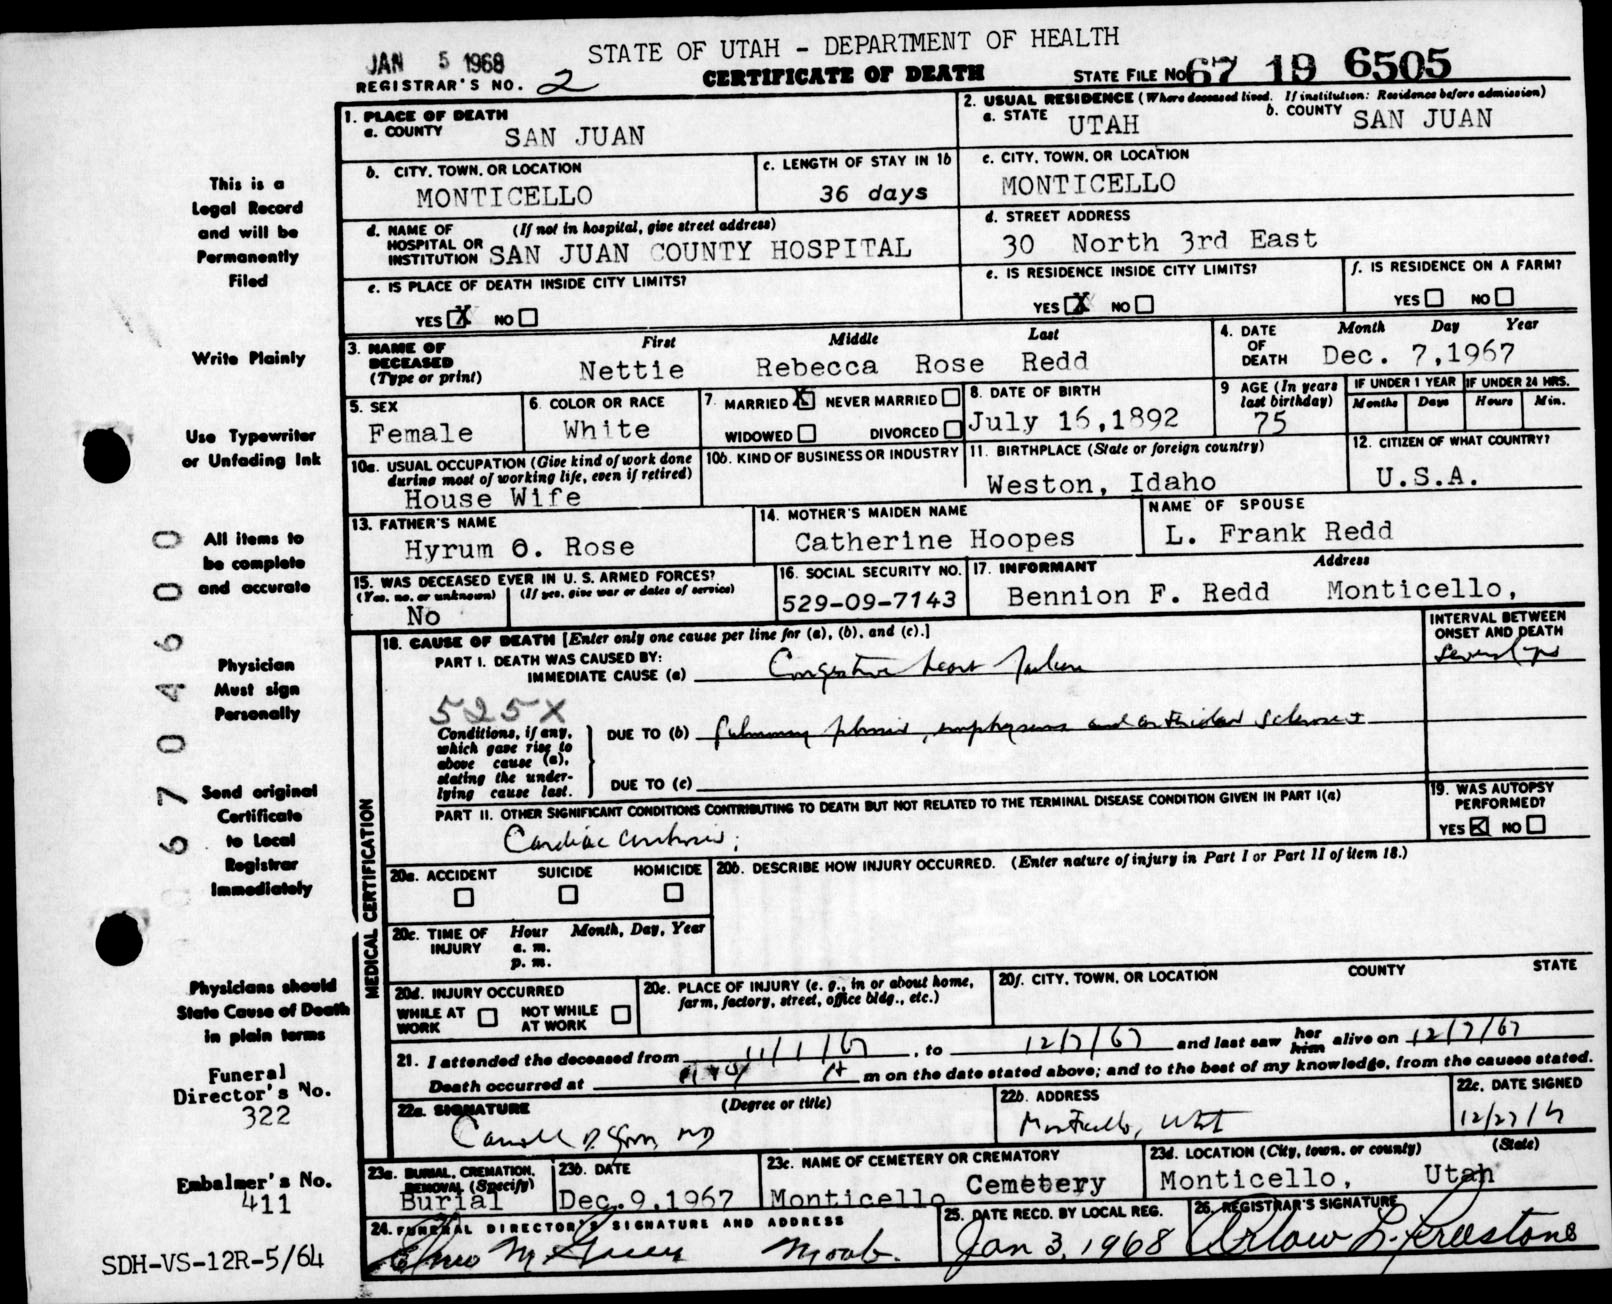 JAN 5 1968
STATE OF UTAH - DEPARTMENT OF HEALTH
REGISTRAR'S NO. 2
CERTIFICATE OF DEATH
STATE FILE NO 67 19 6505
1. PLACE OF DEATH
a. COUNTY SAN JUAN
2. USUAL RESIDENCE (Where deceased lived. If institution: Residence before admission)
a. STATE UTAH b. COUNTY SAN JUAN
b. CITY, TOWN, OR LOCATION MONTICELLO
c. LENGTH OF STAY IN 1b 36 days
c. CITY, TOWN, OR LOCATION MONTICELLO
d. NAME OF HOSPITAL OR INSTITUTION (If not in hospital, give street address) SAN JUAN COUNTY HOSPITAL
d. STREET ADDRESS 30 North 3rd East
e. IS PLACE OF DEATH INSIDE CITY LIMITS? YES X NO
e. IS RESIDENCE INSIDE CITY LIMITS? YES X NO
f. IS RESIDENCE ON A FARM? YES NO
3. NAME OF DECEASED (Type or print) First Middle Last
Nettie Rebecca Rose Redd
4. DATE OF DEATH Month Day Year
Dec. 7,1967
5. SEX Female
6. COLOR OR RACE White
7. MARRIED X NEVER MARRIED
WIDOWED DIVORCED
8. DATE OF BIRTH July 16,1892
9 AGE (In years last birthday) 75
IF UNDER 1 YEAR Months Days
IF UNDER 24 HRS. Hours Min.
10a. USUAL OCCUPATION (Give kind of work done during most of working life, even if retired) House Wife
10b. KIND OF BUSINESS OR INDUSTRY
11. BIRTHPLACE (State or foreign country) Weston, Idaho
12. CITIZEN OF WHAT COUNTRY? U.S.A.
13. FATHER'S NAME Hyrum O. Rose
14. MOTHER'S MAIDEN NAME Catherine Hoopes
NAME OF SPOUSE L. Frank Redd
15. WAS DECEASED EVER IN U. S. ARMED FORCES?
(Yes, no, or unknown) (If yes, give war or dates of service)
No
16. SOCIAL SECURITY NO. 529-09-7143
17. INFORMANT Address
Bennion F. Redd Monticello,
18. CAUSE OF DEATH [Enter only one cause per line for (a), (b), and (c).]
INTERVAL BETWEEN ONSET AND DEATH
PART I. DEATH WAS CAUSED BY:
IMMEDIATE CAUSE (a) Congestive heart failure
525X
Conditions, if any, which gave rise to above cause (a), stating the underlying cause last.
DUE TO (b) Pulmonary fibrosis, emphysema and
DUE TO (c)
PART II. OTHER SIGNIFICANT CONDITIONS CONTRIBUTING TO DEATH BUT NOT RELATED TO THE TERMINAL DISEASE CONDITION GIVEN IN PART I(a)
Cardiac cirrhosis;
19. WAS AUTOPSY PERFORMED?
YES X NO
MEDICAL CERTIFICATION
20a. ACCIDENT SUICIDE HOMICIDE
20b. DESCRIBE HOW INJURY OCCURRED. (Enter nature of injury in Part I or Part II of item 18.)
20c. TIME OF INJURY Hour Month, Day, Year
a. m.
p. m.
20d. INJURY OCCURRED
WHILE AT WORK NOT WHILE AT WORK
20e. PLACE OF INJURY (e. g., in or about home, farm, factory, street, office bldg., etc.)
20f. CITY, TOWN, OR LOCATION COUNTY STATE
21. I attended the deceased from 11/1/67, to 12/7/67 and last saw her him alive on 12/7/67
Death occurred at m on the date stated above; and to the best of my knowledge, from the causes stated.
22a. SIGNATURE (Degree or title)
MD
22b. ADDRESS Monticello, Utah
22c. DATE SIGNED 12/27/67
23a. BURIAL, CREMATION, REMOVAL (Specify) Burial
23b. DATE Dec.9,1967
23c. NAME OF CEMETERY OR CREMATORY Monticello Cemetery
23d. LOCATION (City, town, or county) (State)
Monticello, Utah
24. FUNERAL DIRECTOR'S SIGNATURE AND ADDRESS
Moab.
25. DATE RECD. BY LOCAL REG. Jan 3, 1968
26. REGISTRAR'S SIGNATURE
This is a
Legal Record
and will be
Permanently
Filed
Write Plainly
Use Typewriter
or Unfading Ink
All items to
be complete
and accurate
Physician
Must sign
Personally
Send original
Certificate
to Local
Registrar
Immediately
Physicians should
State Cause of Death
in plain terms
Funeral
Director's No.
322
Embalmer's No.
411
SDH-VS-12R-5/64
670460 0